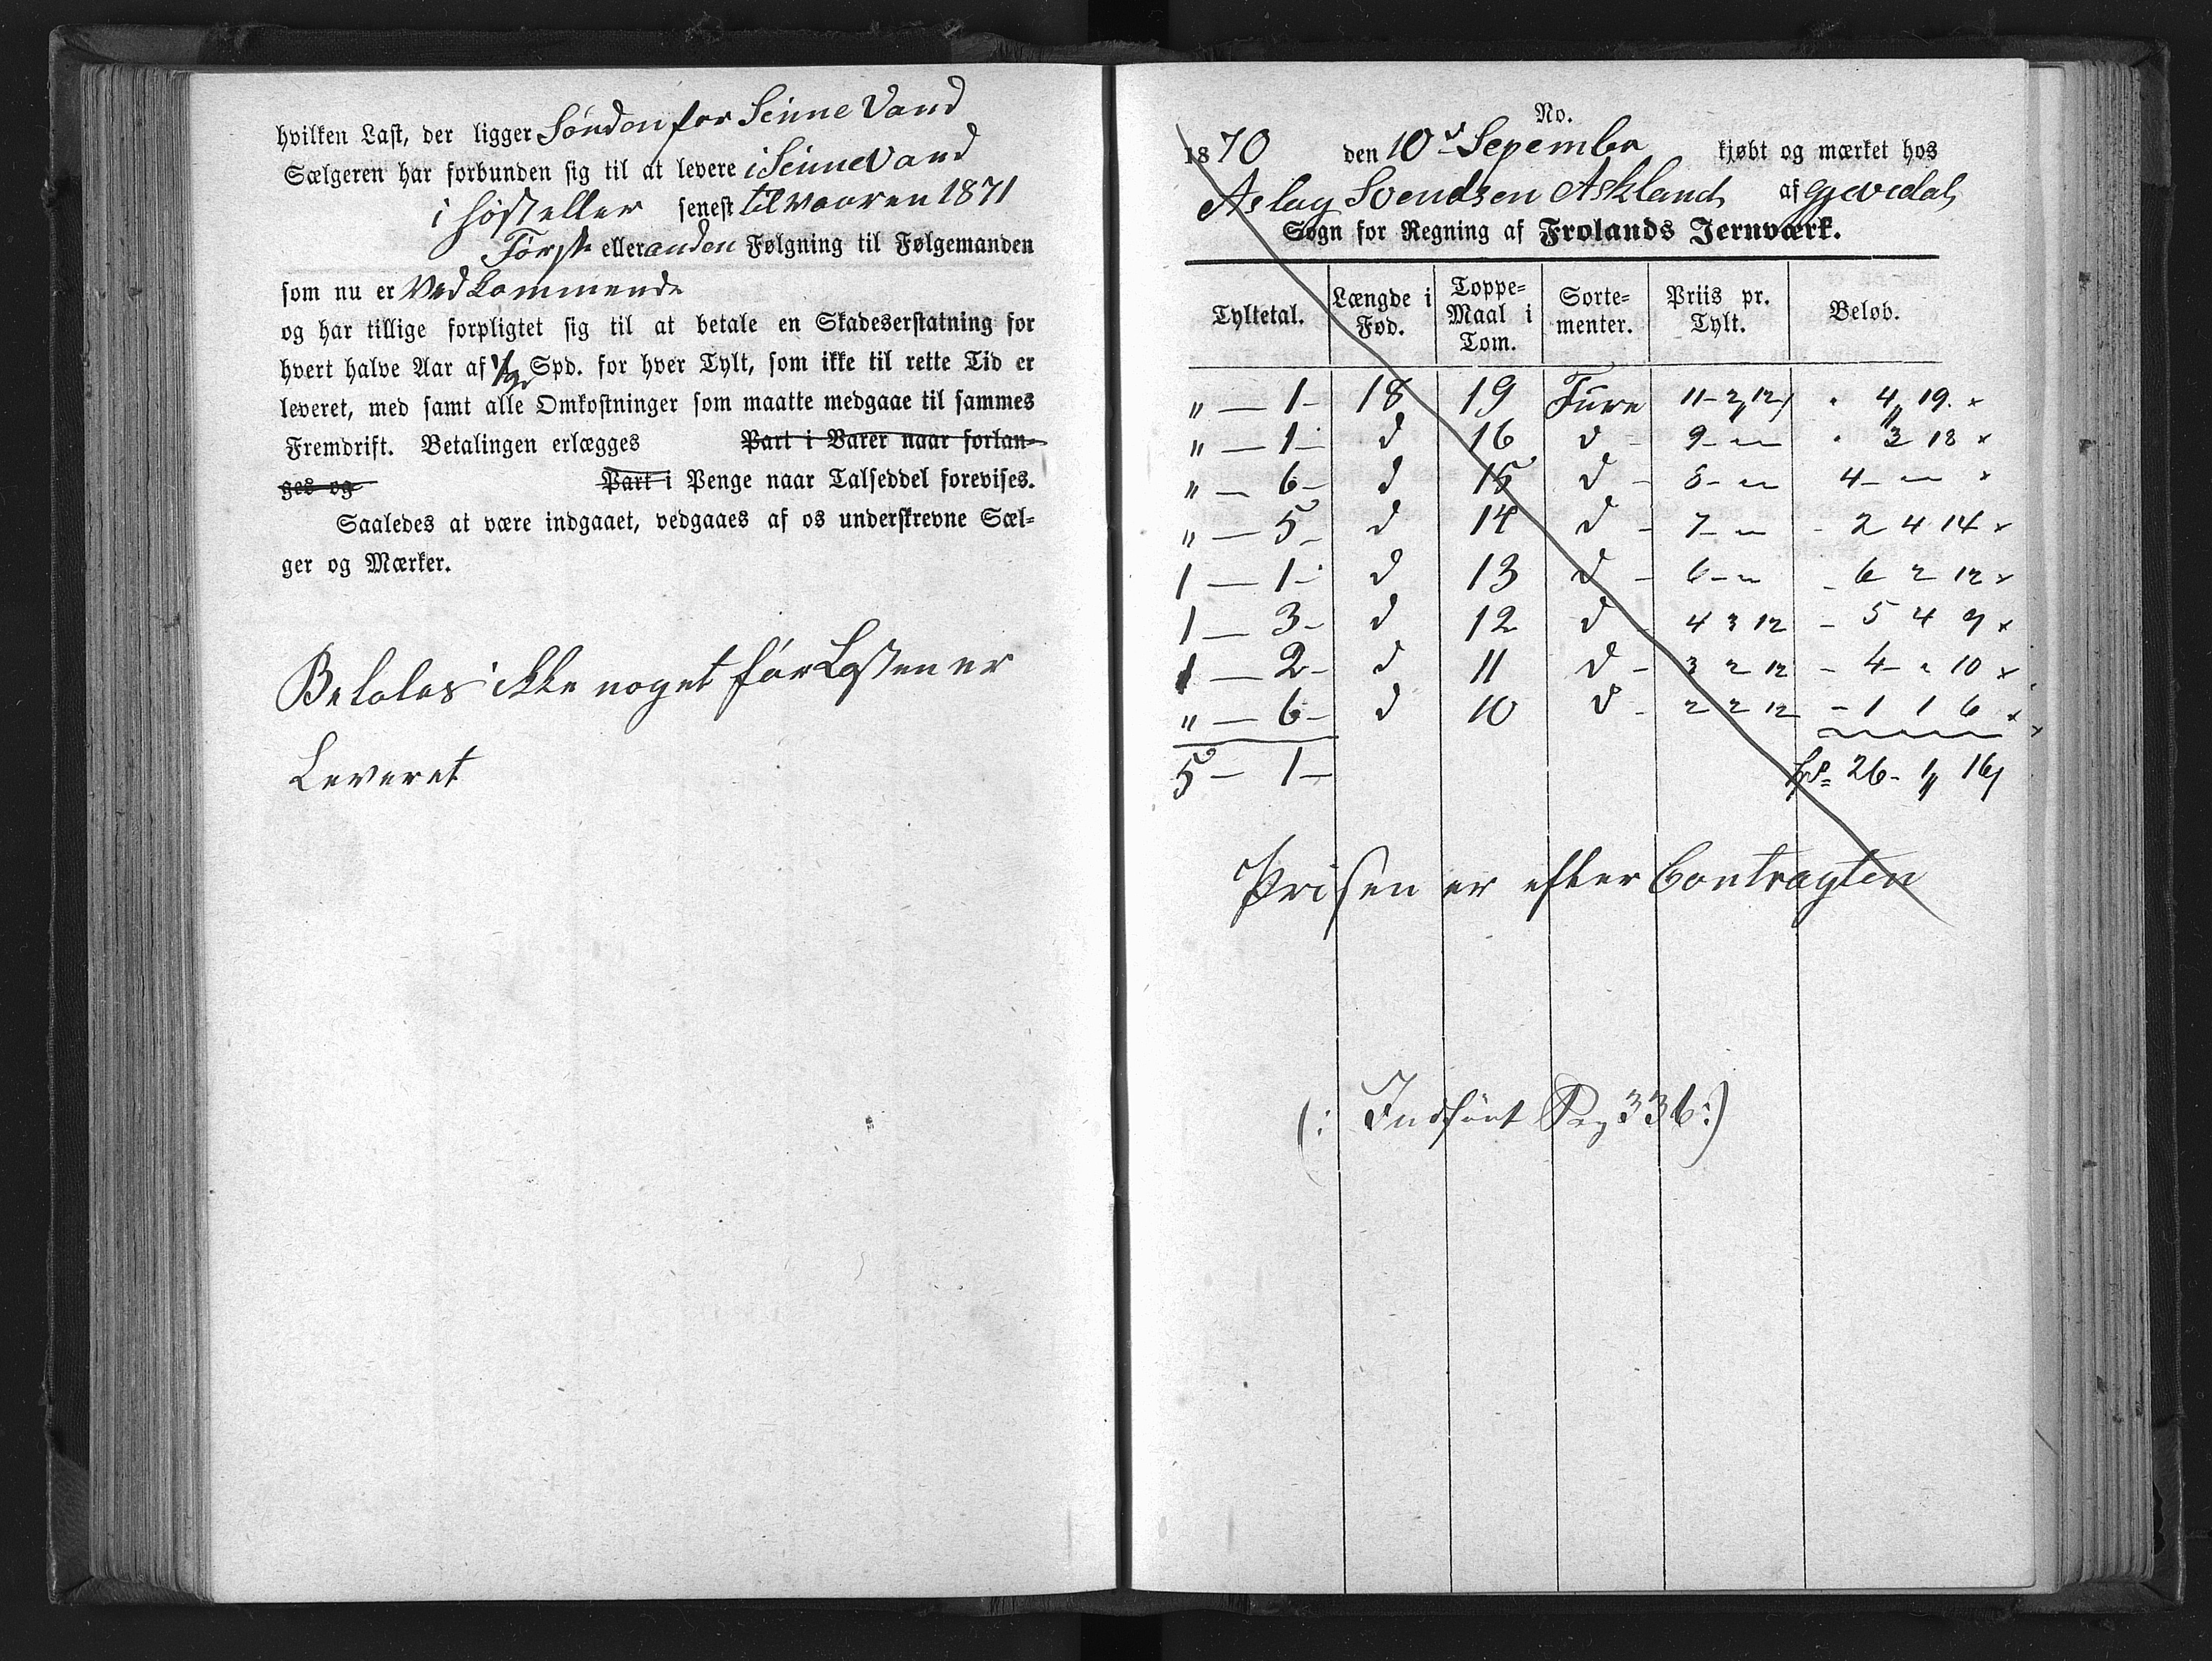 hvilken Last, der ligger Sønden for Seine Vand
Sælgeren har forbunden sig til at levere i Seine Vand
i Høst eller senest til Vaaren 1871
Første eller anden Følgning til Følgemanden
som nu er Vedkommende
og har tillige forpligtet sig til at betale en Skadeserstatning for
hvert halve Aar af 1/2 Spd. for hver Tylt, som ikke til rette Tid er
leveret, med samt alle Omkostninger som maatte medgaae til sammes
Fremdrift. Betalingen erlægges Part i Varer naar forlan-
ges og Part i Penge naar Talseddel forevises.
Saaledes at være indgaaet, vedgaaes af os underskrevne Sæl-
ger og Mærker.
Betales ikke noget før Lasten er
Leveret
No.
1870 den 10d Sepember kjøbt og mærket hos
Aslag Svendsen Askland af Gjevedal
Sogn for Regning af Frolands Jernværk.
Tyltetal. Længde i Fod. Toppe-Maal i Tom. Sorte-menter. Priis pr. Tylt. Beløb.
" — 1 - 18 19 Furu 11 - 2 12 " 4 19 x
" — 1 - d 16 d - 9 - " " 3 18 x
" — 6 - d 15 d - 8 - " 4 - " x
" — 5 - d 14 d - 7 - " - 2 4 14 x
1 — 1 - d 13 d - 6 - " - 6 2 12 x
1 — 3 - d 12 d - 4 3 12 - 5 4 9 x
1 — 2 - d 11 d - 3 2 12 - 4 - " 10 x
" — 6 - d 10 d - 2 2 12 - 1 1 6 x
5 — 1 - 26 - 1 " 16
Prisen er efter Contragten
(: Indført Pag 336 :)